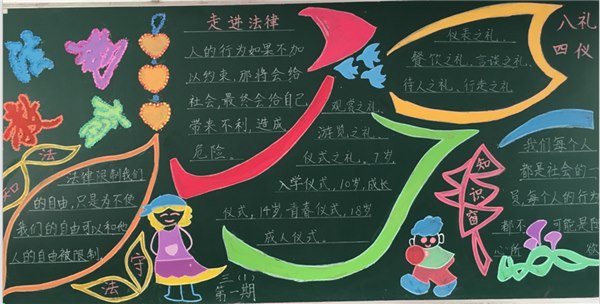 走进法律
人的行为如果不加
以约束,那将会给
社会,最终会给自己
带来不利,造成
危险。
知法
法律限制我们
的自由,只是为不使
我们的自由可以和他
人的自由被限制
守法
三(1)
第一期
八礼
四仪
仪表之礼、
餐饮之礼、言谈之礼、
待人之礼、行走之礼、
观赏之礼、
游览之礼、
仪式之礼。7岁
入学仪式,10岁,成长
仪式,14岁青春仪式,18岁
成人仪式。
知识窗
我们每个人
都是社会的一
员,每个人的行为
都不可能是
心所欲